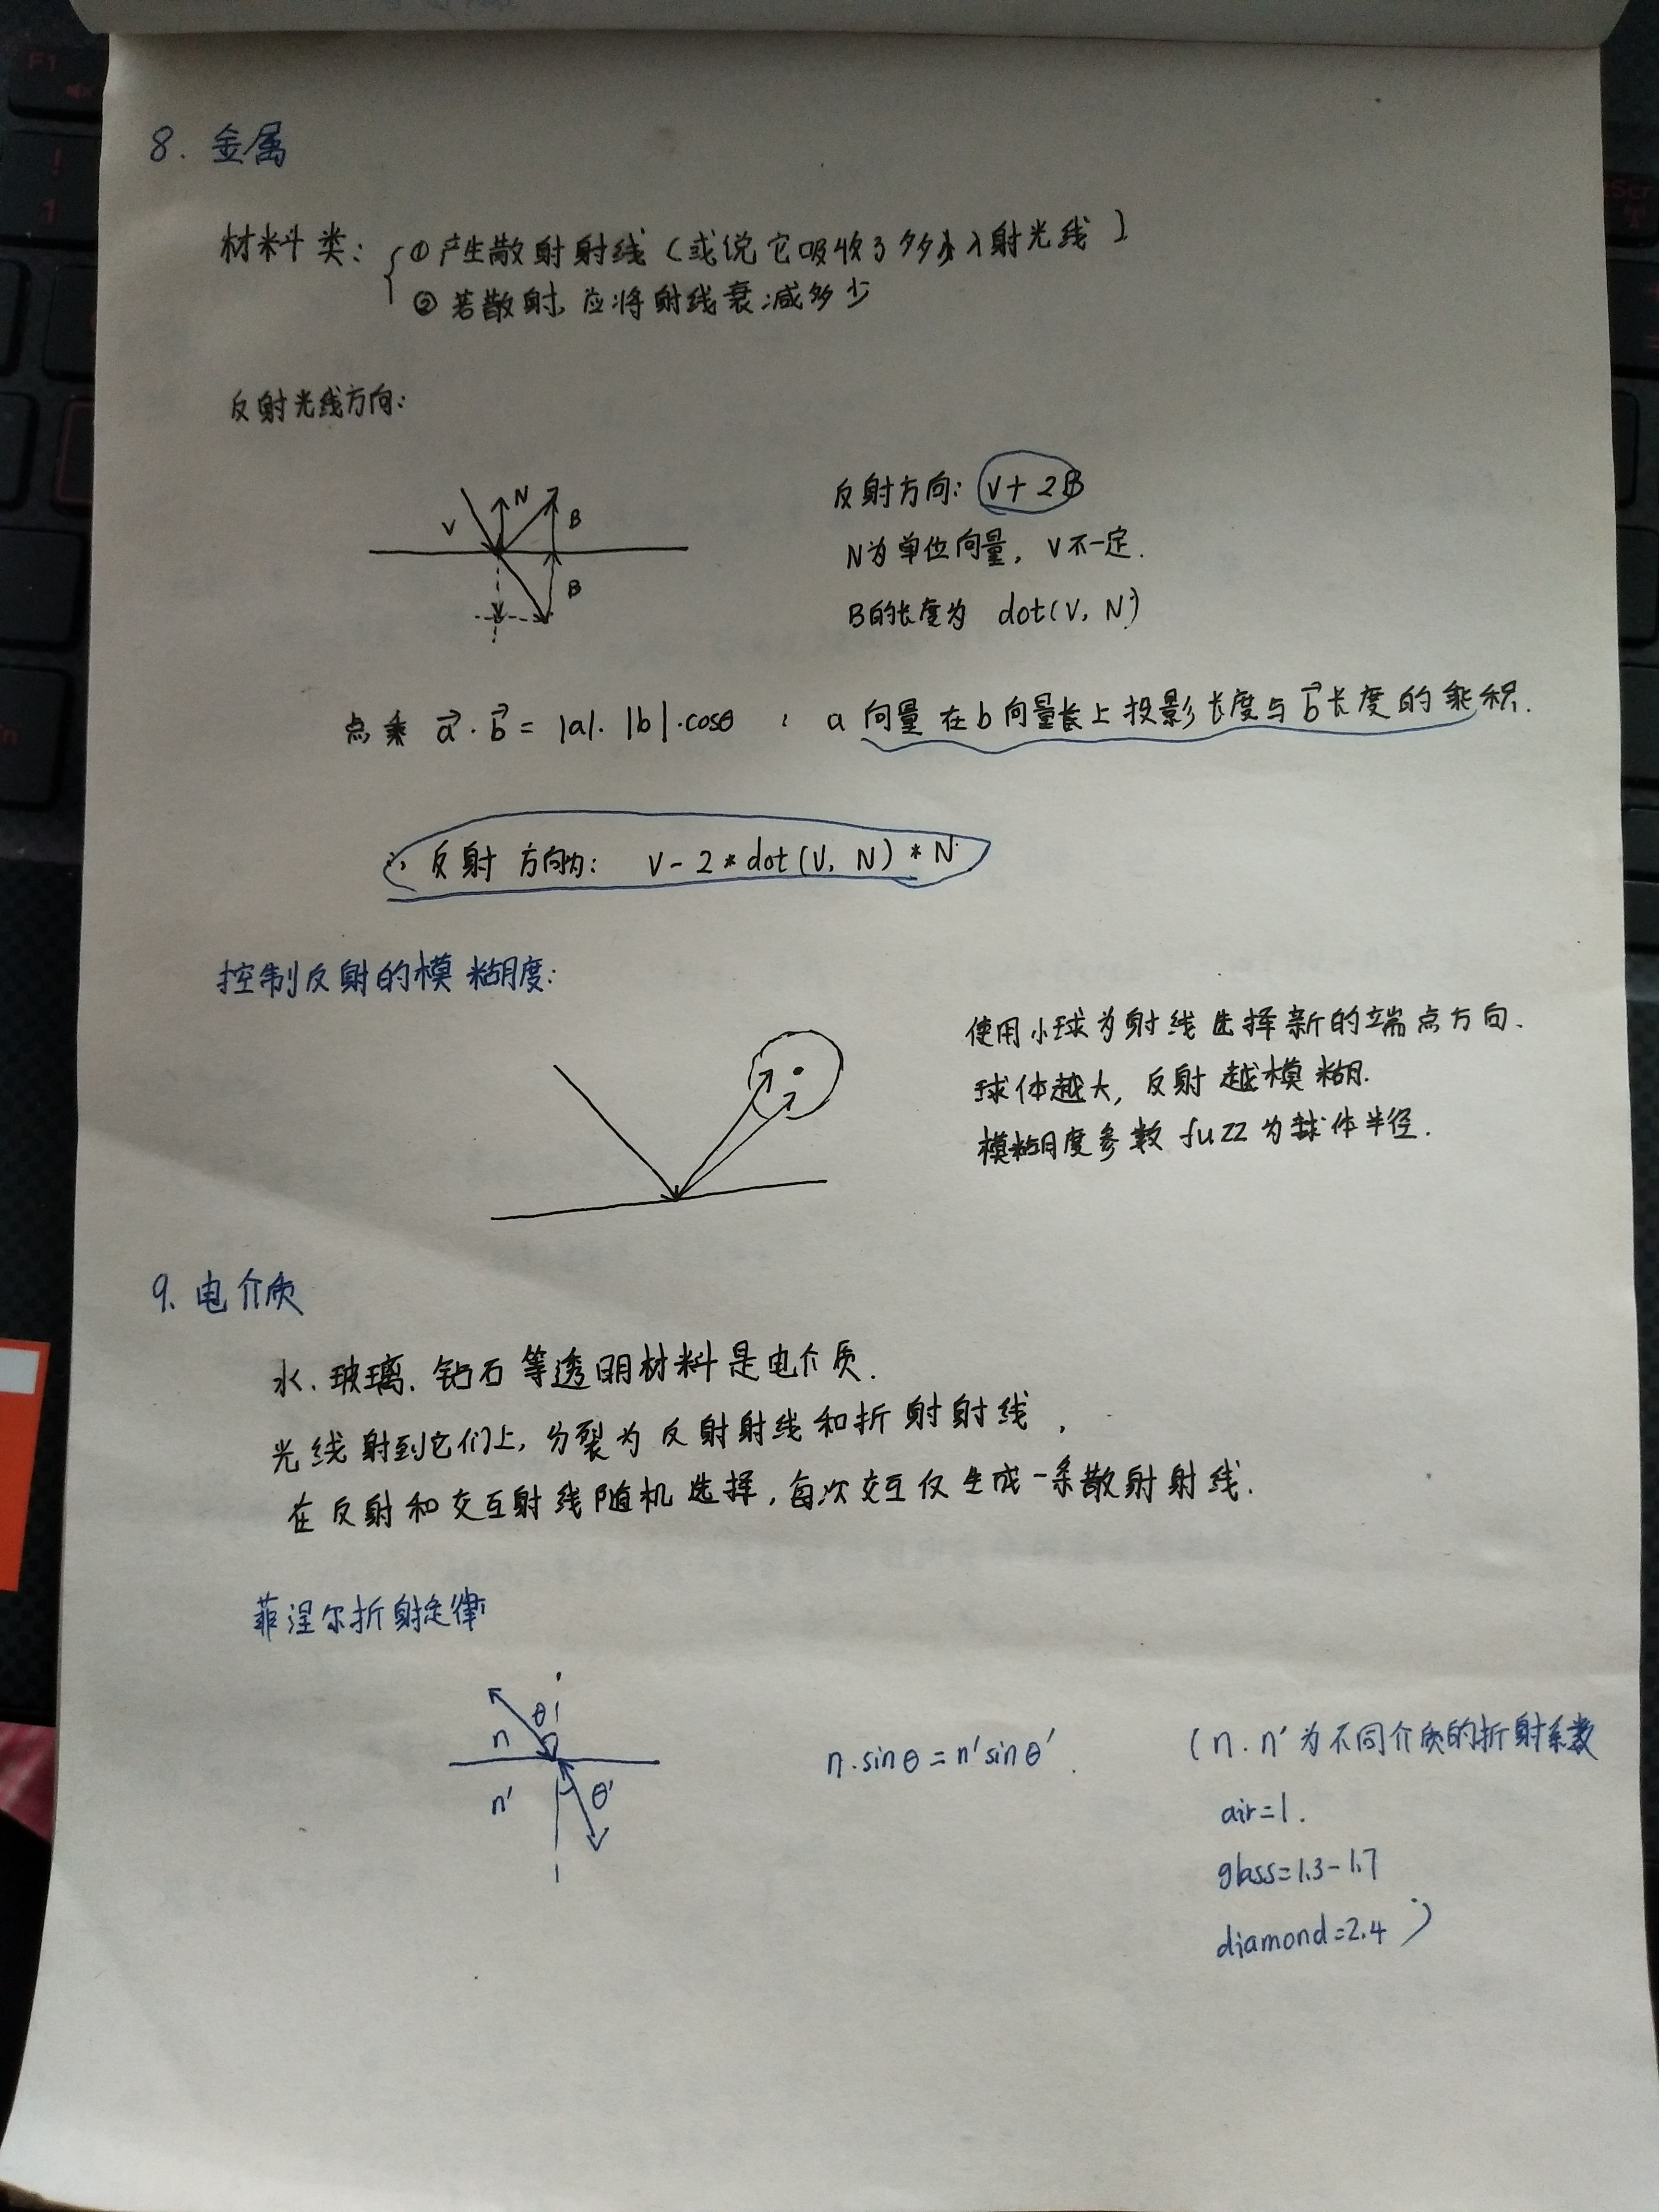 8. 金属
材料类：
①产生散射射线（或说它吸收了多少入射光线）
②若散射，应将射线衰减多少
反射光线方向：
V
N
B
B
反射方向：V+2B
N为单位向量，V不一定.
B的长度为 dot(V, N)
点乘 a⃗·b⃗ = |a|·|b|·cosθ ： a向量在b向量长上投影长度与b⃗长度的乘积.
∴反射方向为： V-2*dot(V, N)*N
控制反射的模糊度：
使用小球为射线选择新的端点方向.
球体越大，反射越模糊.
模糊度参数 fuzz为球体半径.
9. 电介质
水、玻璃、钻石等透明材料是电介质.
光线射到它们上，分裂为反射射线和折射射线，
在反射和交互射线随机选择，每次交互仅生成一条散射射线.
菲涅尔折射定律
θ
n
n'
θ'
n·sinθ=n'sinθ'.
（n、n'为不同介质的折射系数
air=1.
glass=1.3-1.7
diamond=2.4）
F1
!
1